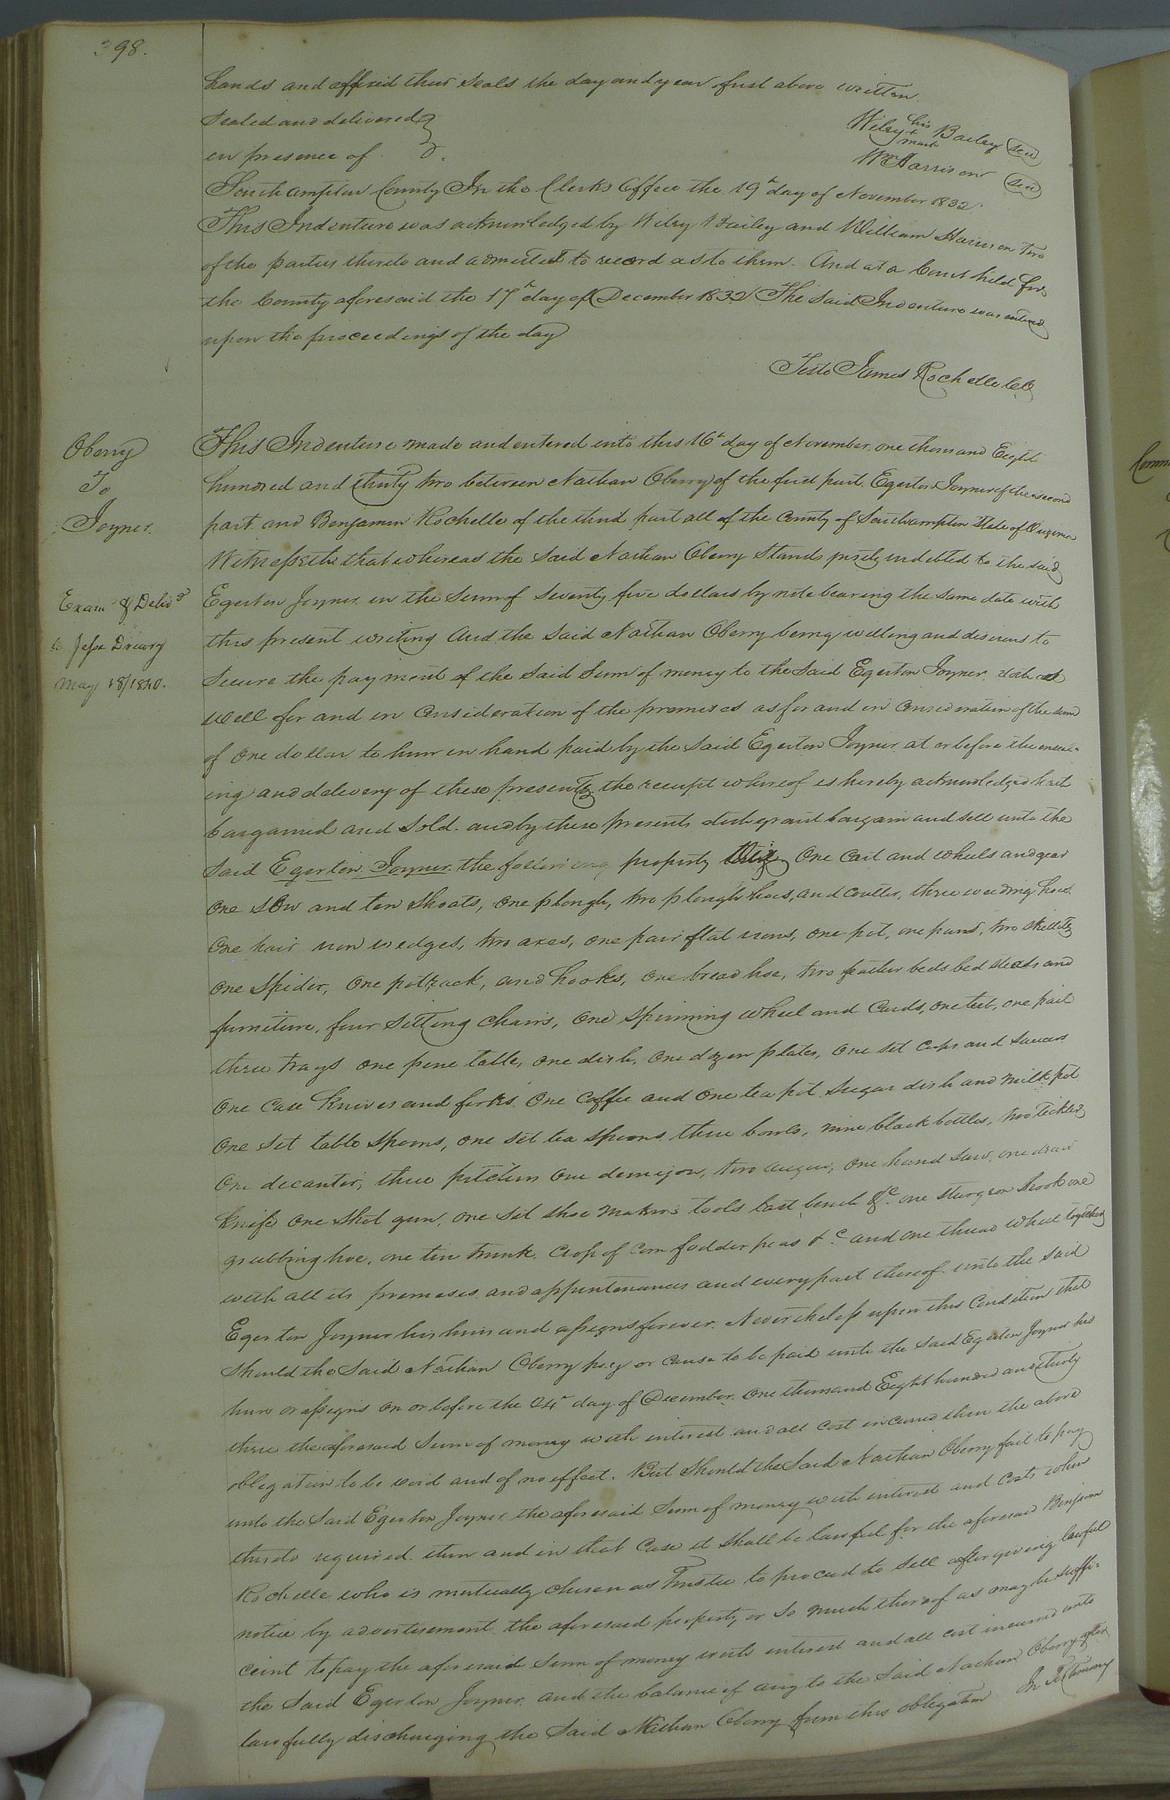 398.
hands and affixed their seals the day and year first above written.
Sealed and delivered }
in presence of }.
Wiley his + mark Bailey (seal)
Wm Harrison (seal)
Southampton County In the Clerks Office the 19th day of November 1832
This Indenture was acknowledged by Wiley Bailey and William Harrison two
of the parties thereto and admitted to record as to them. And at a Court held for
the County aforesaid the 17th day of December 1832 The said Indenture was entered
upon the proceedings of the day
Teste James Rochelle CC
Oberry
To
Joyner.
Exam'd & Deliv'd
to Jesse Drewry
May 18/1840.
This Indenture made and entered into this 16th day of November one thousand Eight
hundred and thirty two between Nathan Oberry of the first part. Egerton Joyner of the second
part and Benjamin Rochelle of the third part all of the County of Southampton State of Virginia
Witnesseth that whereas the said Nathan Oberry Stands justly indebted to the said
Egerton Joyner in the Sum of Seventy five dollars by note bearing the same date with
this present writing And the said Nathan Oberry being willing and desirous to
Secure the payment of the said Sum of money to the Said Egerton Joyner doth as
well for and in Consideration of the premises as for and in Consideration of the sum
of one dollar to him in hand paid by the Said Egerton Joyner at or before the enseal-
ing and delivery of these presents the receipt whereof is hereby acknowledged hath
bargained and Sold. and by these presents doth grant bargain and sell unto the
Said Egerton Joyner the following property One Cart and wheels and gear
One Sow and ten Shoats, one plough, two plough hoes, and coulter, three weeding hoes
One pair iron wedges, two axes, one pair flat irons, one pot, one pans, two skillets
One Spider, One pot rack, and hooks, one bread hoe, two feather beds bed steads and
furniture, four Sitting chairs, One Spinning wheel and Cards, one tub, one pail
three trays one pine table, one dish, one dozen plates, one set cups and saucers
One Case Knives and forks. One Coffee and One tea pot Sugar dish and milk pot
One Set table Spoons, one Set tea Spoons three bowls, nine black bottles,
One decanter, three pitchers One demijon, two augers, one hand saw, one draw
Knife One Shot gun, one Set Shoe makers tools last bench &c one Sturgeon hook one
grubbing hoe, one tin trunk. Crop of Corn fodder peas &c and one thread wheel together
with all its premises and appurtenances and every part thereof unto the said
Egerton Joyner his heirs and assigns forever. Nevertheless upon this Condition that
Should the Said Nathan Oberry pay or cause to be paid unto the Said Egerton Joyner his
heirs or assigns on or before the 24th day of December One thousand Eight hundred and thirty
three the aforesaid Sum of money with interest and all Cost incurred then the above
obligation to be void and of no effect. But Should the Said Nathan Oberry fail to pay
unto the Said Egerton Joyner the aforesaid Sum of money with interest and Costs when
thereto required then and in that Case it Shall be lawful for the aforesaid Benjamin
Rochelle who is mutually chosen as Trustee to proceed to Sell after giving lawful
notice by advertisement the aforesaid property or so much thereof as may be suffi-
cient to pay the aforesaid Sum of money with interest and all cost incurred unto
the Said Egerton Joyner and the balance if any to the Said Nathan Oberry after
lawfully discharging the Said Nathan Oberry from this obligation In Testimony